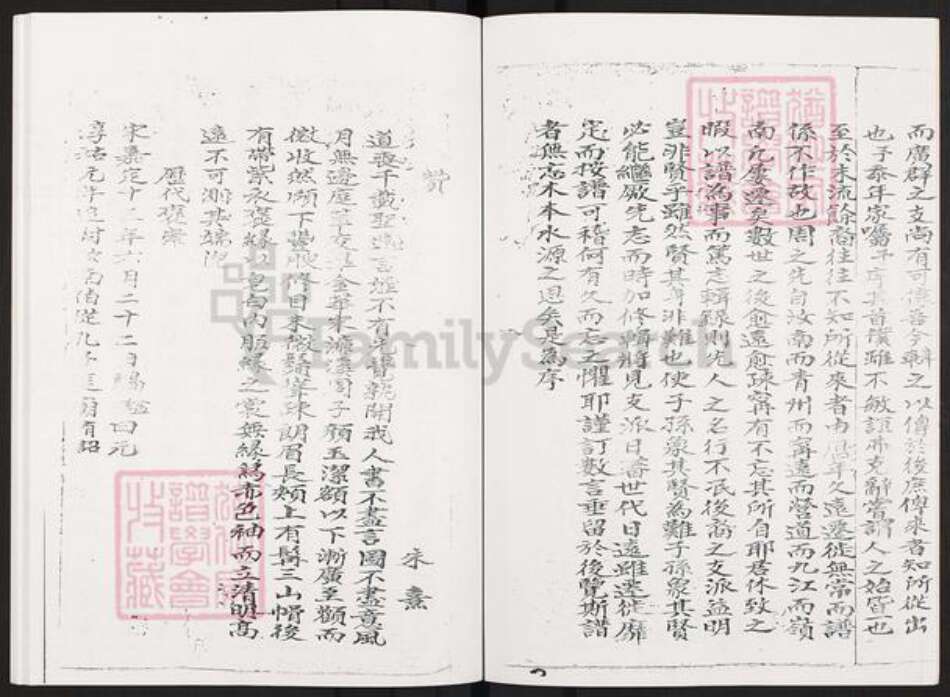 而廣群之支尚有可傳㳟今輯之以傳於後庶俾來者知所從出
也予泰年家囑予序其首僕雖不敏誼弗克辭嘗謂人之始皆一也
至於末流餘裔往往不知所從來者由歷年久遠遷徙無常而譜
係不作故也周之先自汝南而青州而寗遠而營道而九江而嶺
南九屢遷至數世之後愈遠愈疎寗有不忘其所自耶君休致之
暇以譜為事而篤志輯錄則先人之名行不泯後裔之支派益明
豈非賢乎雖然賢其身非難也使子孫象其賢為難子孫象其賢
必能繼厥先志而時加修輯將見支派日蕃世代日遠雖遷徙靡
定而按譜可稽何有久而忘之懼耶謹訂數言垂留於後覽斯譜
者無忘木本水源之思矣是為序
贊
朱熹
道喪千載聖遠言堙不有先覺孰開我人書不盡言圖不盡意風
月無邊庭草交翠金華宋濂溪周子顏玉潔額以下漸廣至顴而
微收然頤下豐腴脩目末微聳鬚疎朗眉長頰上有髯三山帽後
有帶紫衣褒緣以皂白內服緣之裳無緣舄赤色袖而立清明高
遠不可測其端倪
歷代褒崇
宋嘉定十三年六月二十二日賜謚曰元
淳祐元年追封汝南伯從祀